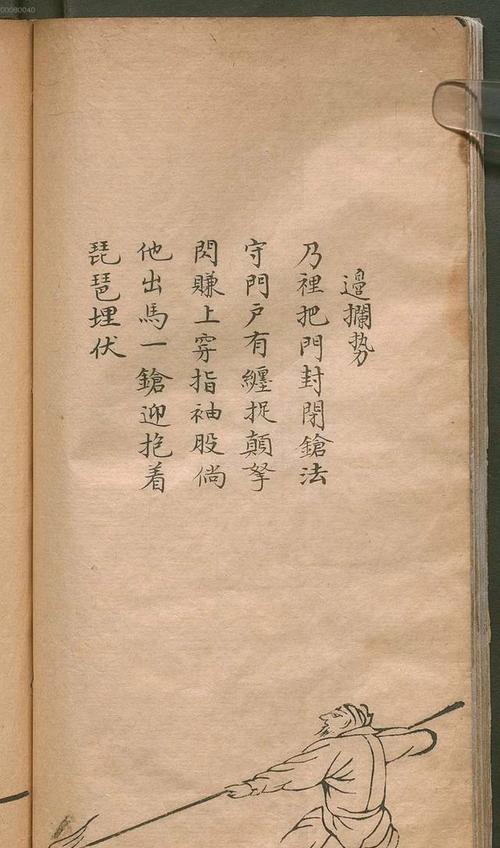 邉攔势
乃裡把門封閉鎗法
守門戶有纏捉顛拏
閃賺上穿指袖股倘
他出馬一鎗迎抱着
琵琶埋伏
00080040